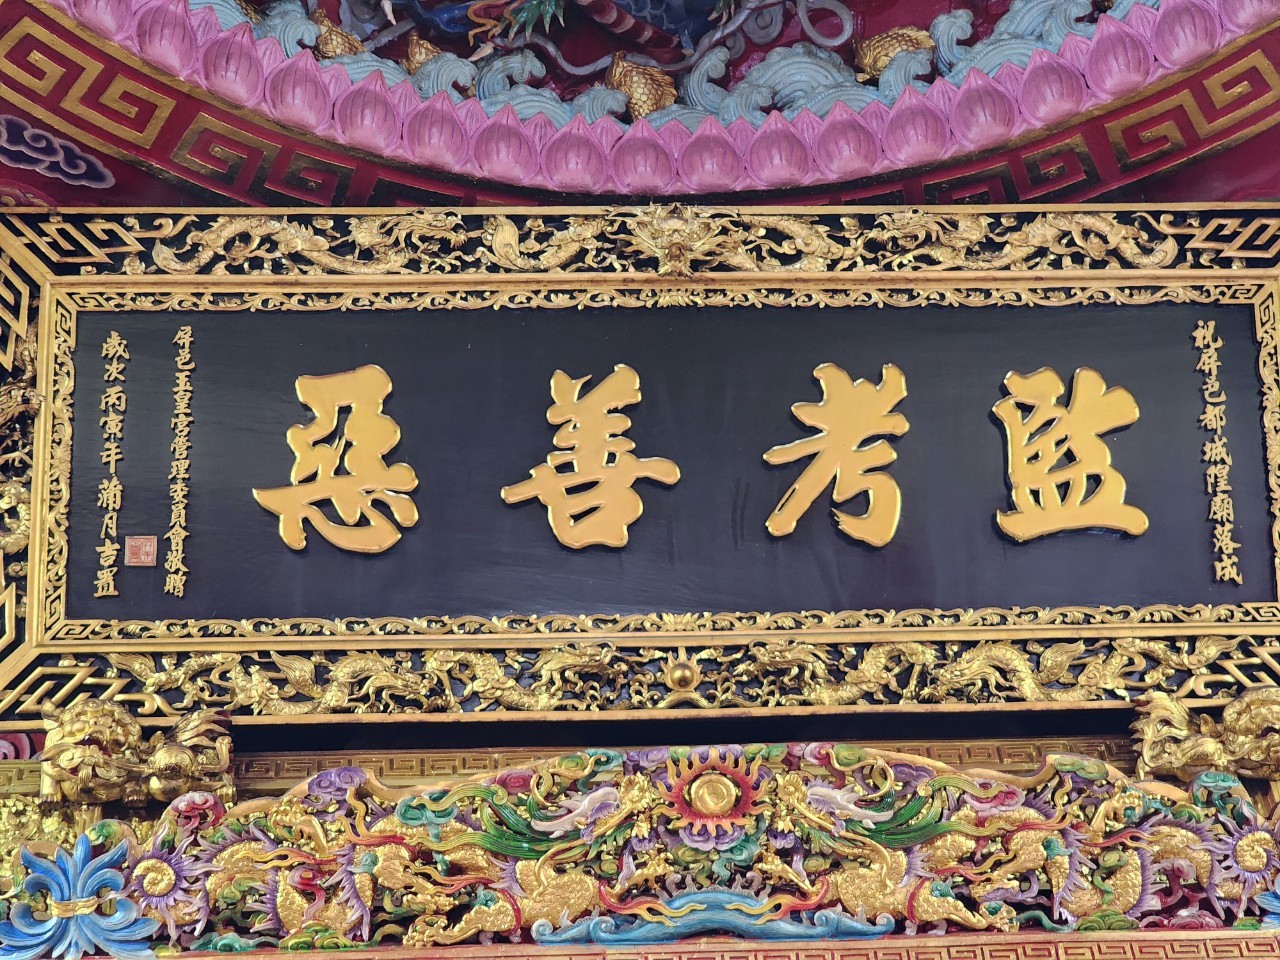 祝屏邑都城隍廟落成
監考善惡
屏邑玉皇宮管理委員會敬贈
歲次丙寅年蒲月吉置